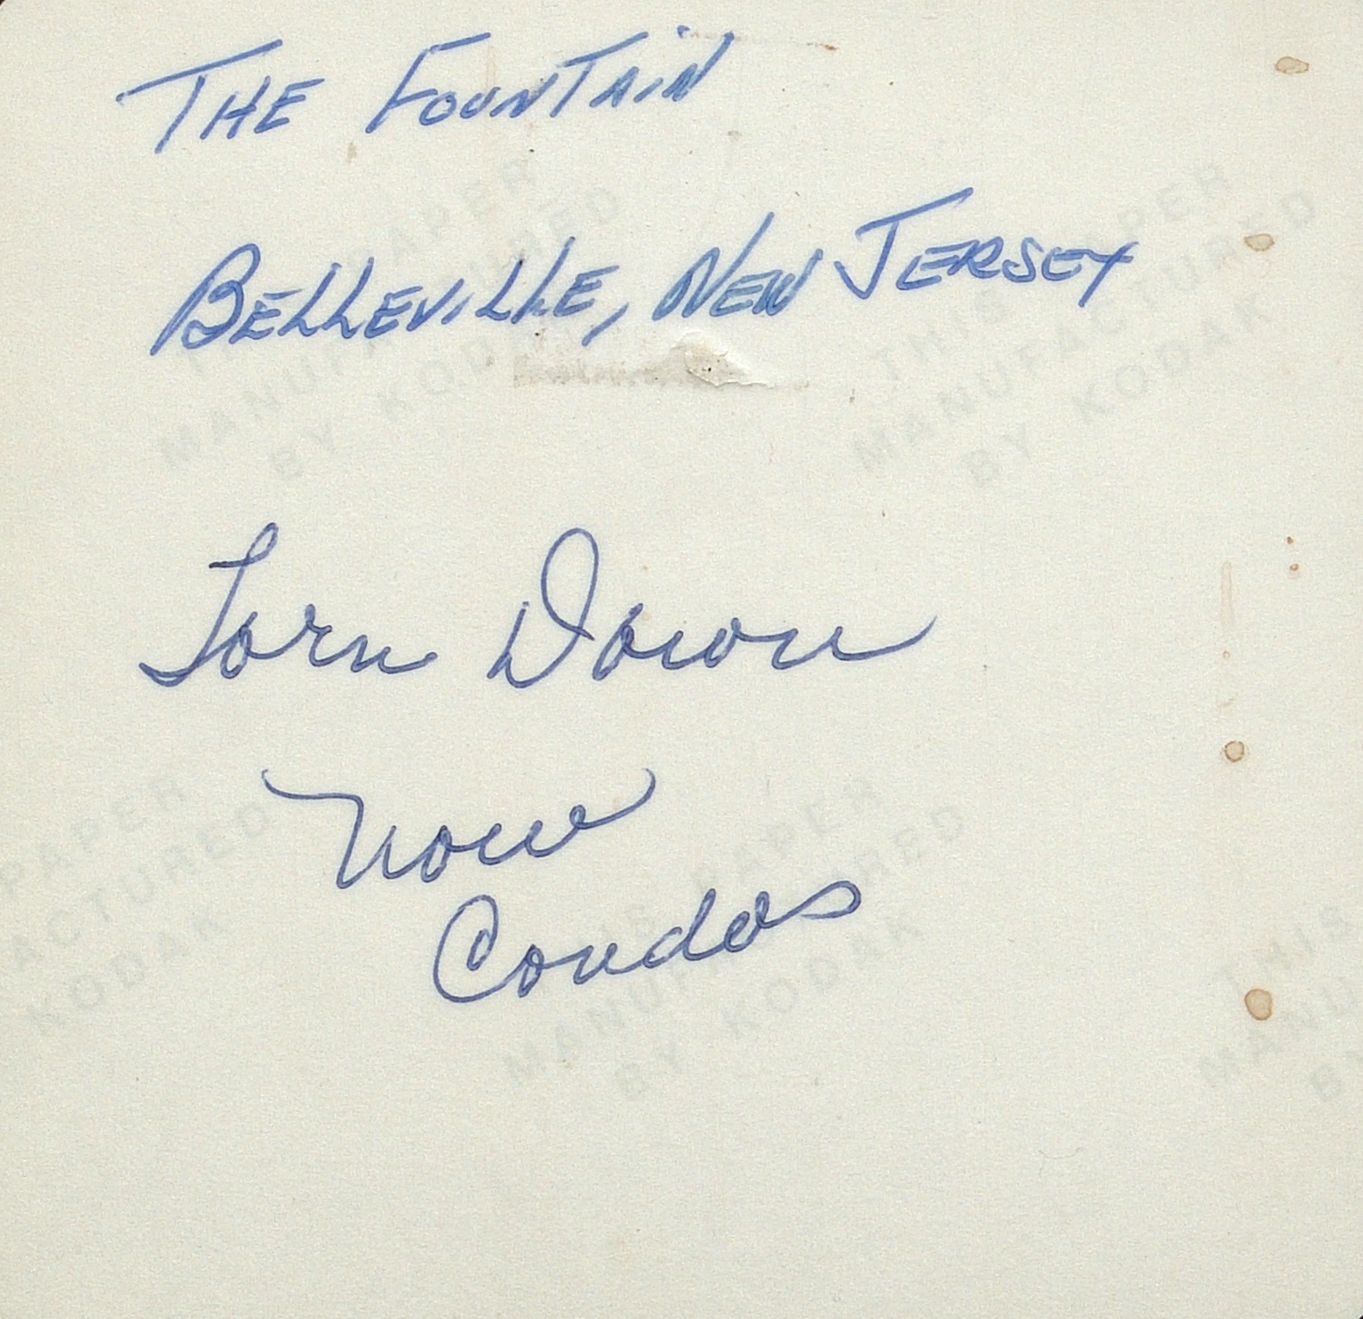 THE FOUNTAIN
BELLEVILLE, NEW JERSEY
Torn Down
Now
Condos
THIS PAPER
MANUFACTURED
BY KODAK
THIS PAPER
MANUFACTURED
BY KODAK
PAPER
ACTURED
KODAK
THIS PAPER
MANUFACTURED
BY KODAK
HIS
MANU
BY